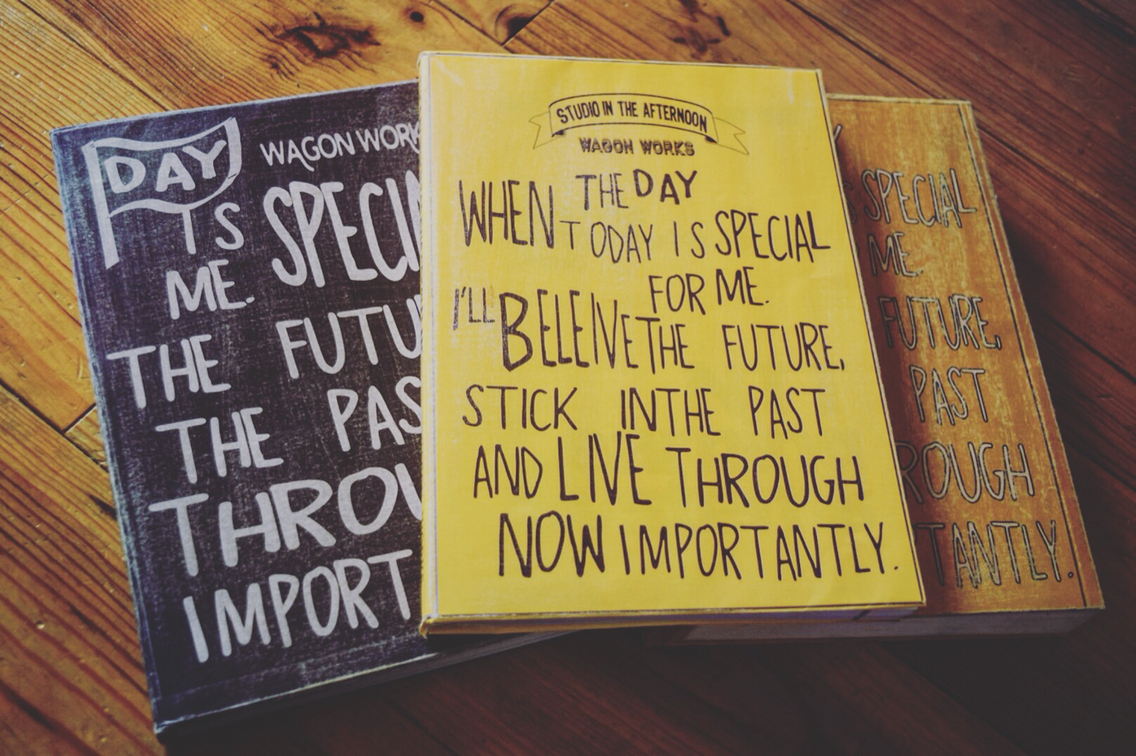 DAY
WAGON WORK
IS SPECIA
ME.
THE FUTU
THE PAS
THROU
IMPORT
STUDIO IN THE AFTERNOON
WAGON WORKS
WHEN THE DAY
TODAY IS SPECIAL
FOR ME.
I'LL BELEIVE THE FUTURE,
STICK IN THE PAST
AND LIVE THROUGH
NOW IMPORTANTLY.
SPECIAL
ME.
FUTURE,
PAST
ROUGH
TANTLY.